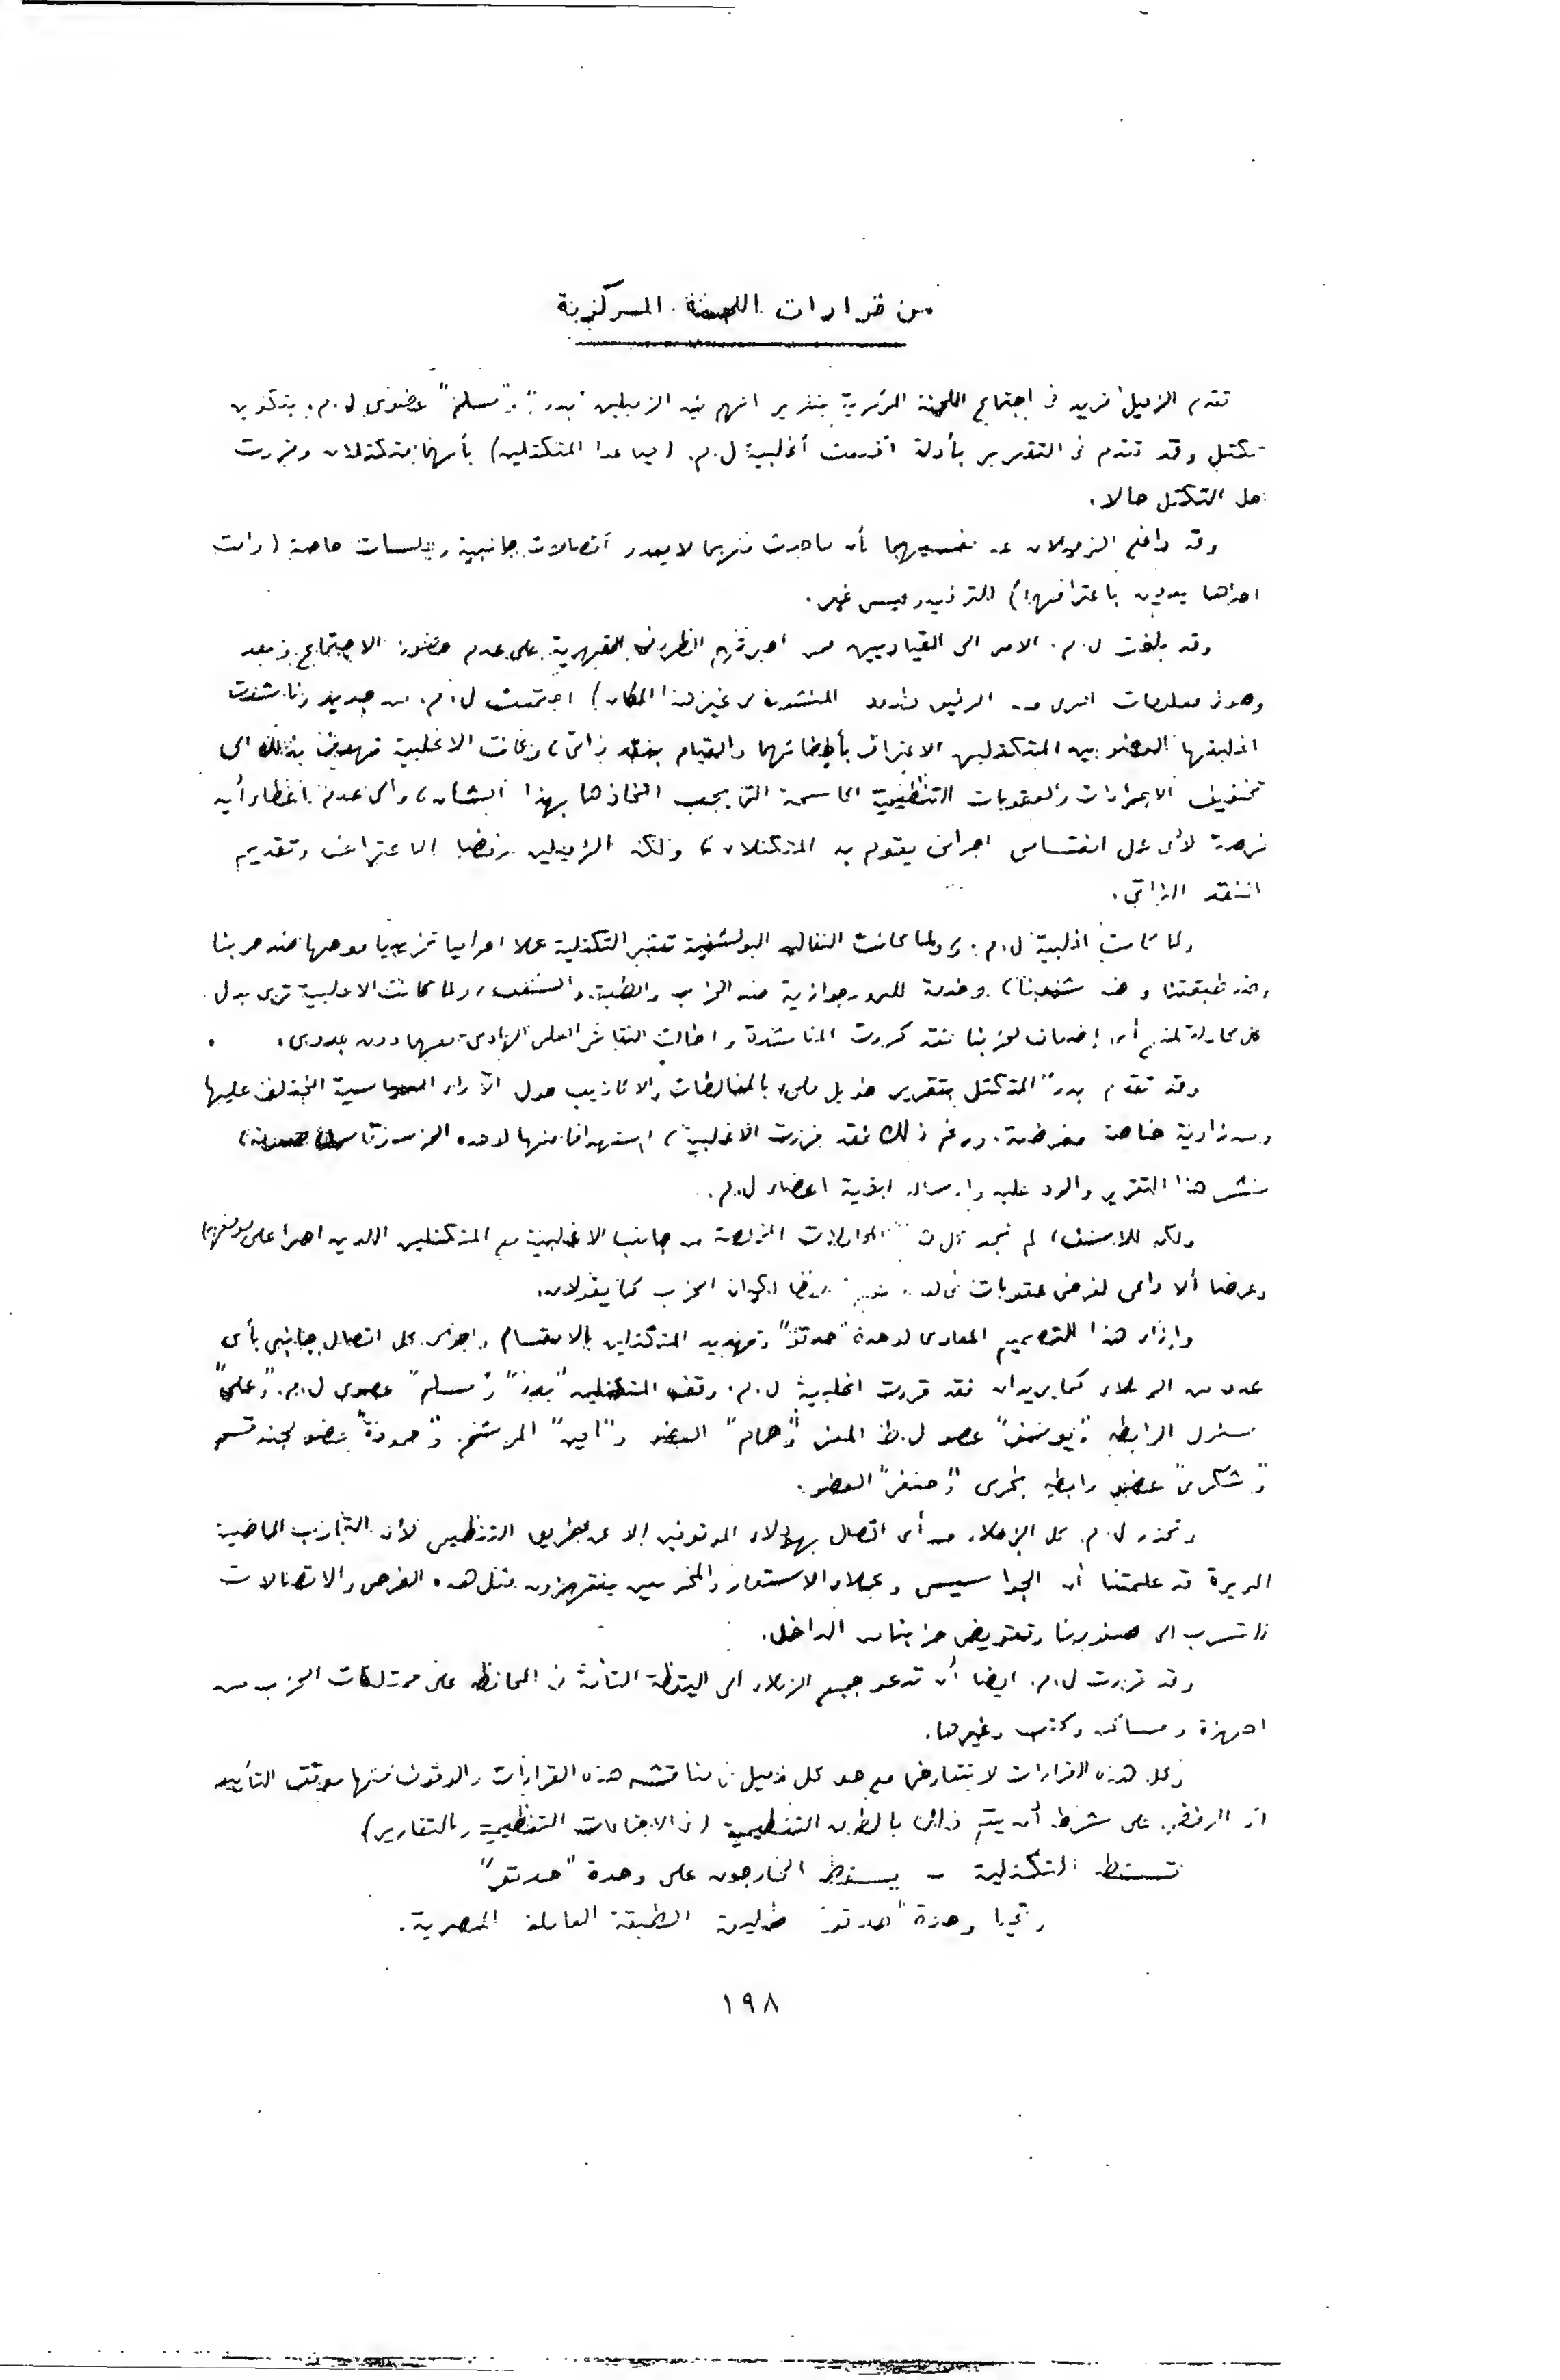 من قرارات اللجنة المركزية
تقدم الزميل فريد فى اجتماع اللجنة المركزية بتقرير اتهم فيه الزميلين "بدر" و"مسلم" عضوى ل.م. بتكوين
تكتل وقد تقدم فى التقرير بأدلة أقنعت أغلبية ل.م. (فيما عدا المتكتلين) بأنهما متكتلان وقررت
حل التكتل حالا.
وقد دافع الزميلان عن نفسيهما بأن ما حدث منهما لا يعدو اتصالات جانبية وجلسات خاصة (دامت
احداها يومين باعترافهما) للترفيه وليس غير.
وقد بلغت ل.م. الامر الى القياديين ممن اجبرتهم الظروف القهرية على عدم حضور الاجتماع وبعد
وصول معلومات اخرى من الرفيق المنشورة فى غير هذا المكان) اجتمعت ل.م. من جديد وناشدت
اغلبيتها العضوين المتكتلين الاعتراف بأخطائهما والقيام بنقد ذاتى، وكانت الاغلبية تهدف بذلك الى
تخفيف الاجراءات والعقوبات التنظيمية الحاسمة التى يجب اتخاذها بهذا الشأن، والى عدم اعطاء أية
فرصة لأى عمل انقسامى اجرامى يقوم به المتكتلان، ولكن الزميلين رفضا الاعتراف وتقديم
النقد الذاتى.
ولما كانت اغلبية ل.م. ولما كانت التقاليد البولشفية تعتبر التكتلية عملا اجراميا تخريبيا موجها ضد حزبنا
وضد طبقتنا وضد شعبنا، وخدمة للبورجوازية ضد الحزب والطبقة والشعب، ولما كانت الاغلبية ترى بذل
كل محاولة لمنع أى إضعاف لحزبنا فقد كررت المناشدة واطالت النقاش العلمى الهادئ معهما دون جدوى.
وقد تقدم بدر" المتكتل بتقرير طويل ملىء بالمغالطات والاكاذيب حول الآراء السياسية المختلف عليها
ومن زاوية خاصة مغرضة. ورغم ذلك فقد قررت الاغلبية، استهدافا منها لوحدة الحزب
نشر هذا التقرير والرد عليه وارساله لبقية اعضاء ل.م.
ولكن للاسف، لم تجد تلك المحاولات المخلصة من جانب الاغلبية مع المتكتلين الذين اصرا على موقفهما
وعرضا ألا داعى لفرض عقوبات لكيان الحزب كما يقولان.
وإزاء هذا التصميم المعادى لوحدة "حدتو" وتهديد المتكتلين بالانقسام واجراء كل اتصال جانبى بأى
عدد من الزملاء كما يريدان فقد قررت اغلبية ل.م. وقف المتكتلين "بدر" و"مسلم" عضوى ل.م. و"على"
مسئول الرابطة و"يوسف" عضو ل.ط المعز و"همام" العضو و"امين" المرشح. و"حمودة" عضو لجنة قسم
و"شكرى" عضو رابطة بحرى و"صنفر" العضو.
وتحذر ل.م. كل الزملاء من أى اتصال بهؤلاء الموقوفين إلا عن طريق التنظيم لأن التجارب الماضية
المريرة قد علمتنا أن الجواسيس وعملاء الاستعمار والمخربين ينتهزون مثل هذه الفرص والاتصالات
للتسرب الى صفوفنا وتقويض حزبنا من الداخل.
وقد قررت ل.م. ايضا أن تدعو جميع الزملاء الى اليقظة التامة فى المحافظة على ممتلكات الحزب من
اجهزة ومساكن وكتب وغيرها.
وكل هذه القرارات لا تتعارض مع حق كل زميل فى مناقشة هذه القرارات والوقوف منها موقف التأييد
او الرفض على شرط أن يتم ذلك بالطرق التنظيمية (فى الاجتماعات التنظيمية وبالتقارير)
تسقط التكتلية – يسقط الخارجون على وحدة "حدتو"
وتحيا وحدة "حدتو" طليعة الطبقة العاملة المصرية.
١٩٨